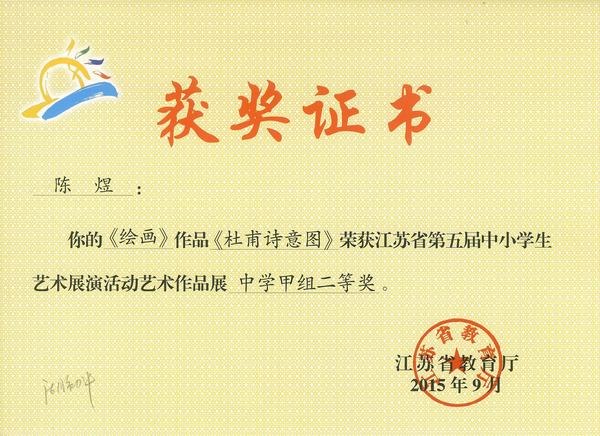 获奖证书
陈煜：
你的《绘画》作品《杜甫诗意图》荣获江苏省第五届中小学生
艺术展演活动艺术作品展中学甲组二等奖。
江苏省教育厅
江苏省教育厅
2015年9月